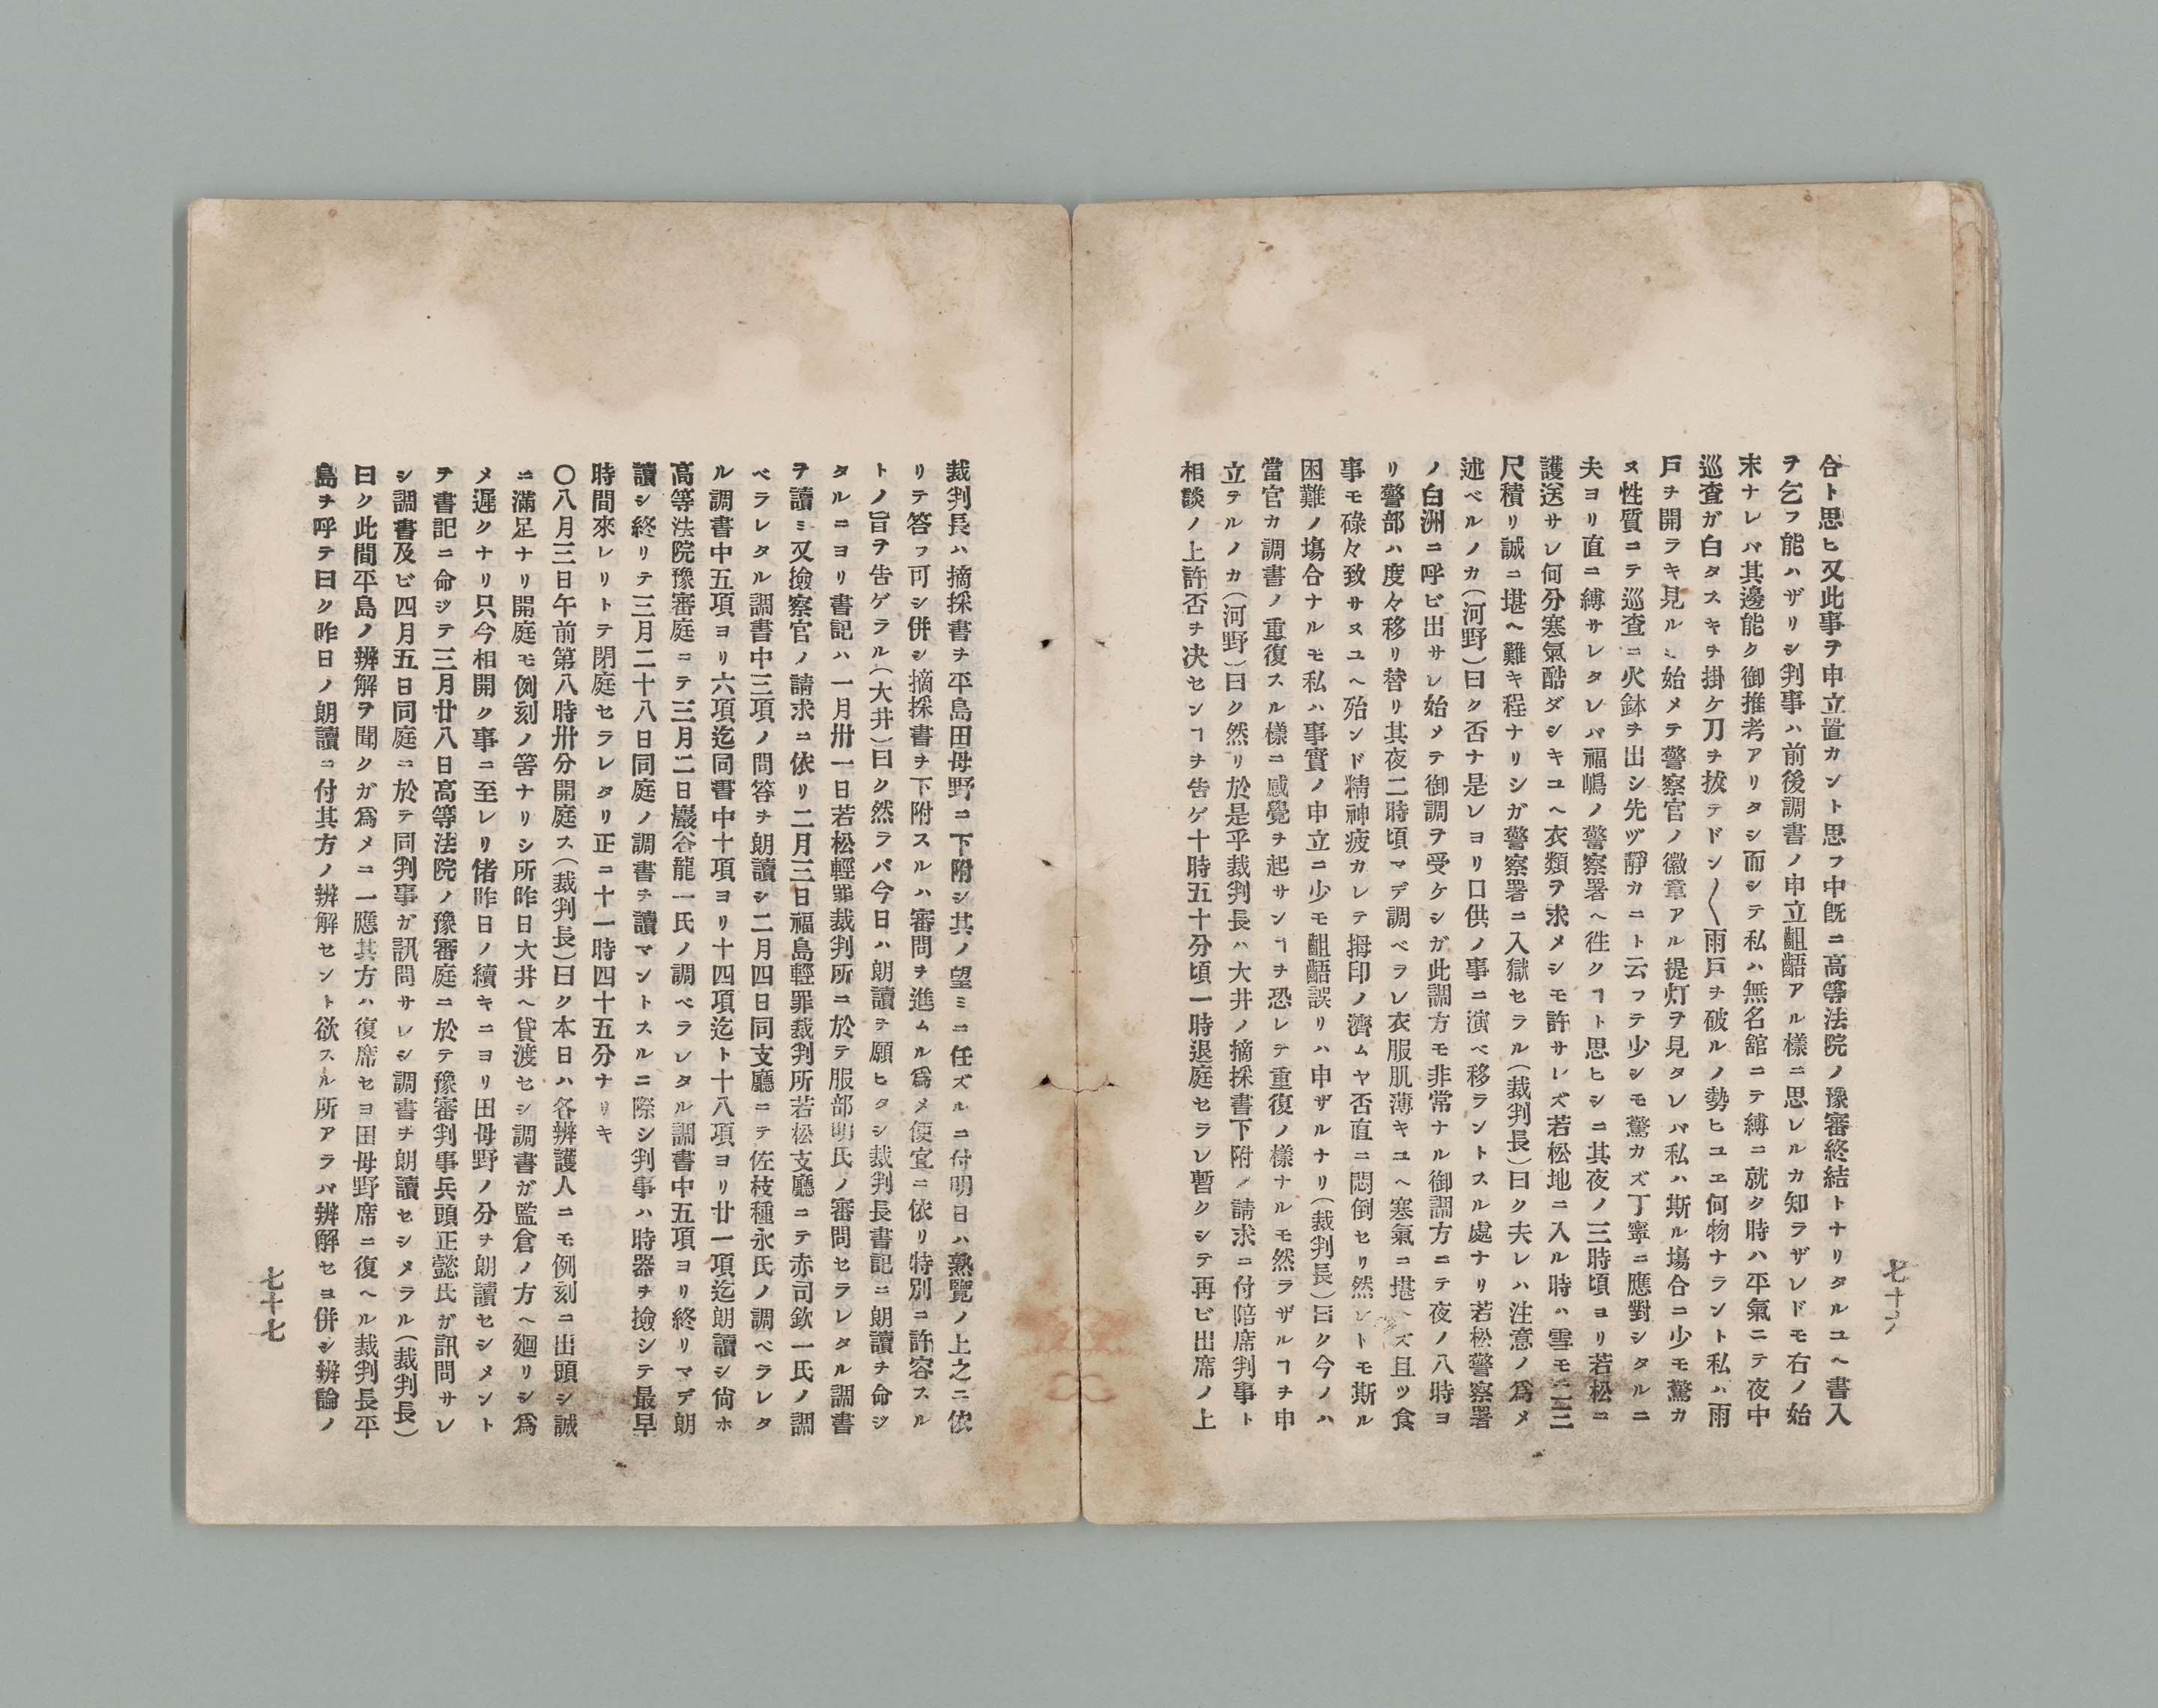 合ト思ヒ又此事ヲ申立置カント思フ中既ニ高等法院ノ豫審終結トナリタルユヘ書入
ヲ乞フ能ハザリシ判事ハ前後調書ノ申立齟齬アル樣ニ思レルカ知ラザレドモ右ノ始
末ナレバ其邊能ク御推考アリタシ而シテ私ハ無名舘ニテ縛ニ就ク時ハ平氣ニテ夜中
巡査ガ白タスキヲ掛ケ刀ヲ拔テドン〱雨戸ヲ破ルノ勢ヒユヱ何物ナラント私ハ雨
戸ヲ開ラキ見ルニ始メテ警察官ノ徽章アル提灯ヲ見タレバ私ハ斯ル塲合ニ少モ驚カ
ヌ性質ニテ巡査ニ火鉢ヲ出シ先ヅ靜カニト云フテ少シモ驚カズ丁寧ニ應對シタルニ
夫ヨリ直ニ縛サレタレバ福嶋ノ警察署ヘ徃クヿト思ヒシニ其夜ノ三時頃ヨリ若松ニ
護送サレ何分寒氣酷ダシキユヘ衣類ヲ求メシモ許サレズ若松地ニ入ル時ハ雪モ二三
尺積リ誠ニ堪ヘ難キ程ナリシガ警察署ニ入獄セラル(裁判長)曰ク夫レハ注意ノ爲メ
述ベルノカ(河野)曰ク否ナ是レヨリ口供ノ事ニ演ベ移ラントスル處ナリ若松警察署
ノ白洲ニ呼ビ出サレ始メテ御調ヲ受ケシガ此調方モ非常ナル御調方ニテ夜ノ八時ヨ
リ警部ハ度々移リ替リ其夜二時頃マデ調ベラレ衣服肌薄キユヘ寒氣ニ堪ヘズ且ツ食
事モ碌々致サヌユヘ殆ンド精神疲カレテ拇印ノ濟ムヤ否直ニ悶倒セリ然レトモ斯ル
困難ノ塲合ナルモ私ハ事實ノ申立ニ少モ齟齬誤リハ申ザルナリ(裁判長)曰ク今ノハ
當官カ調書ノ重復スル樣ニ感覺ヲ起サンヿヲ恐レテ重復ノ樣ナルモ然ラザルヿヲ申
立テルノカ(河野)曰ク然リ於是乎裁判長ハ大井ノ摘採書下附ノ請求ニ付陪席判事ト
相談ノ上許否ヲ决センヿヲ告ゲ十時五十分頃一時退庭セラレ暫クシテ再ビ出席ノ上
七十六
裁判長ハ摘採書ヲ平島田母野ニ下附シ其ノ望ミニ任ズルニ付明日ハ熟覽ノ上之ニ依
リテ答フ可シ併シ摘採書ヲ下附スルハ審問ヲ進ムル爲メ便宜ニ依リ特別ニ許容スル
トノ旨ヲ告ゲラル(大井)曰ク然ラバ今日ハ朗讀ヲ願ヒタシ裁判長書記ニ朗讀ヲ命ジ
タルニヨリ書記ハ一月卅一日若松輕罪裁判所ニ於テ服部明氏ノ審問セラレタル調書
ヲ讀ミ又撿察官ノ請求ニ依リ二月三日福島輕罪裁判所若松支廳ニテ赤司欽一氏ノ調
ベラレタル調書中三項ノ問答ヲ朗讀シ二月四日同支廳ニテ佐枝種永氏ノ調ベラレタ
ル調書中五項ヨリ六項迄同書中十項ヨリ十四項迄ト十八項ヨリ廿一項迄朗讀シ尙ホ
高等法院豫審庭ニテ三月二日巖谷龍一氏ノ調ベラレタル調書中五項ヨリ終リマデ朗
讀シ終リテ三月二十八日同庭ノ調書ヲ讀マントスルニ際シ判事ハ時器ヲ撿シテ最早
時間來レリトテ閉庭セラレタリ正ニ十一時四十五分ナリキ
〇八月三日午前第八時卅分開庭ス(裁判長)曰ク本日ハ各辨護人ニモ例刻ニ出頭シ誠
ニ滿足ナリ開庭モ例刻ノ筈ナリシ所昨日大井ヘ貸渡セシ調書ガ監倉ノ方ヘ廻リシ爲
メ遲クナリ只今相開ク事ニ至レリ偖昨日ノ續キニヨリ田母野ノ分ヲ朗讀セシメント
ヲ書記ニ命ジテ三月廿八日高等法院ノ豫審庭ニ於テ豫審判事兵頭正懿氏ガ訊問サレ
シ調書及ビ四月五日同庭ニ於テ同判事ガ訊問サレシ調書ヲ朗讀セシメラル(裁判長)
曰ク此間平島ノ辨解ヲ聞クガ爲メニ一應其方ハ復席セヨ田母野席ニ復ヘル裁判長平
島ヲ呼テ曰ク昨日ノ朗讀ニ付其方ノ辨解セント欲スル所アラバ辨解セヨ併シ辨論ノ
七十七